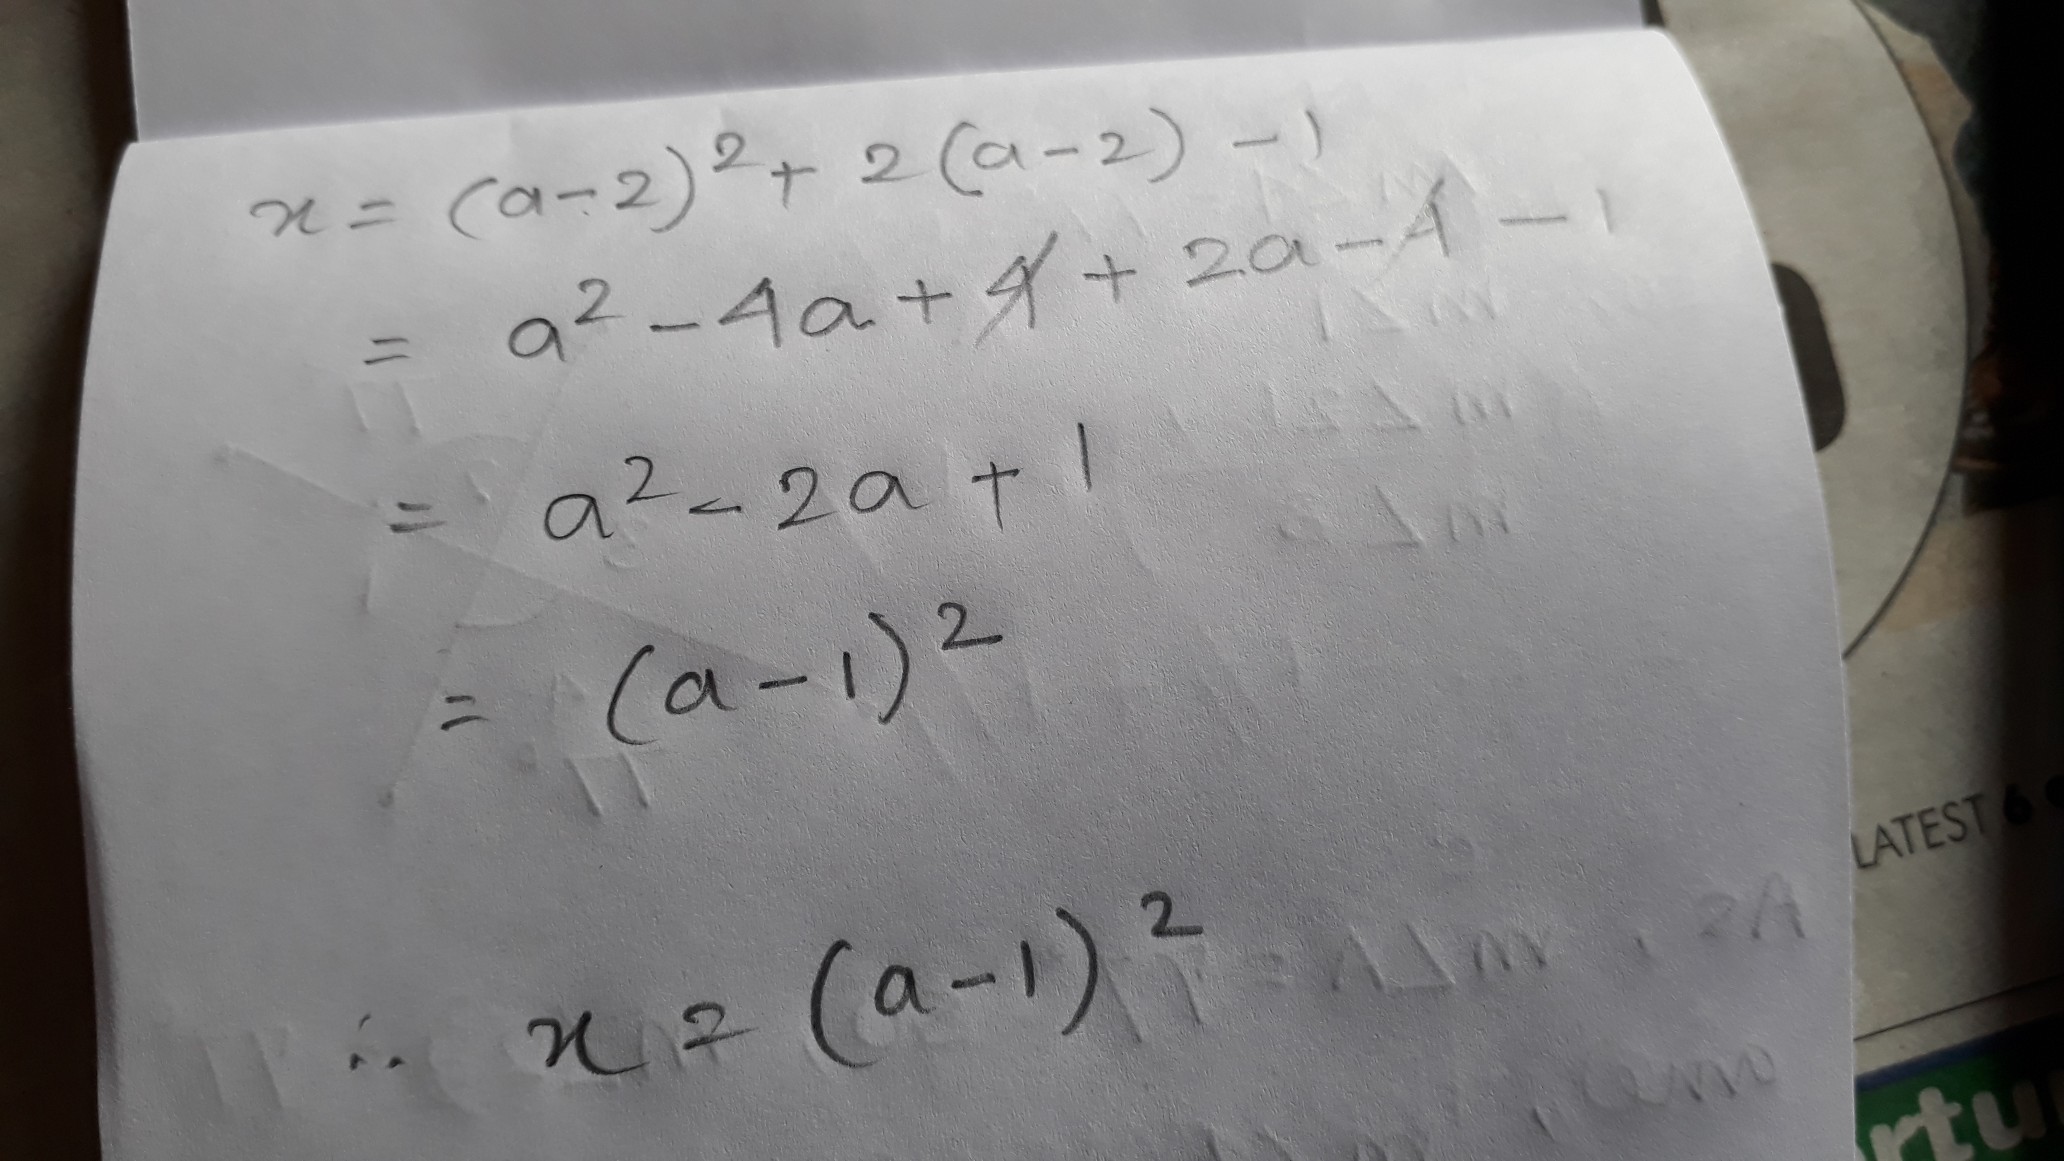 x = (a-2)² + 2(a-2) -1
= a² - 4a + 4 + 2a - 4 - 1
= a² - 2a + 1
= (a-1)²
∴ x = (a-1)²
LATEST 6
rtu